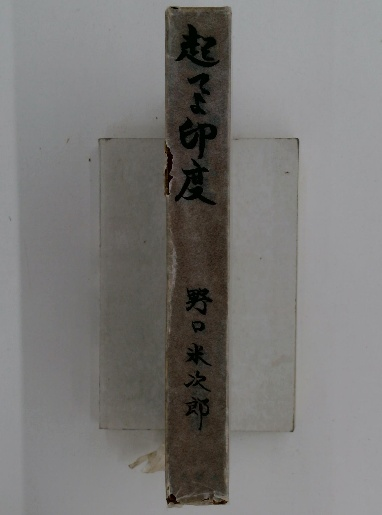 起てよ印度
野口米次郎